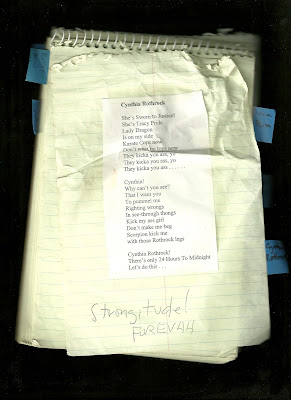 Cynthia Rothrock
She's Sworn to Justice!
She's Tracy Pride
Lady Dragon
Is on my side
Karate Cops now
Don't what be
They kicka you ass, yo
They kicka you ass, yo
They kicka you ass . . . . . .
Cynthia!
Why can't you see?
That I want you
To pommel me
Righting wrongs
In see-through thongs
Kick my ass girl
Don't make me beg
Scorpion kick me
with those Rothrock legs
Cynthia Rothrock!
There's only 24 Hours To Midnight
Let's do this . . .
Strongitude!
FOREVAH